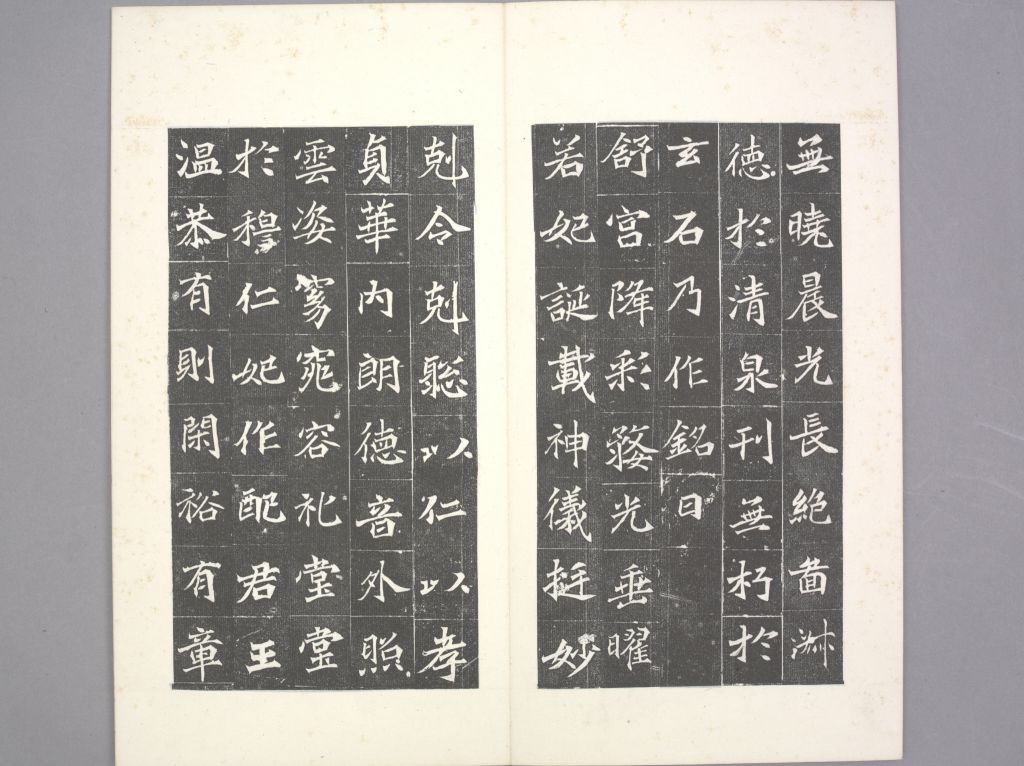 無曉晨光長絶啚淑
徳於清泉刊無朽於
玄石乃作銘曰
舒宮降彩婺光垂曜
若妃誕載神儀挺妙
剋令剋聡以仁以孝
貞華内朗徳音外照
雲姿窈窕容礼堂堂
於穆仁妃作配君王
温恭有則閑裕有章